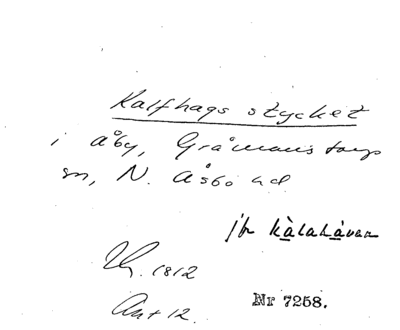 Kalfhags stycket
i Åby, Gråmanstorps
sn, N. Åsbo hd
jfr kàlahàvan
1812
Akt 12.
Nr 7258.